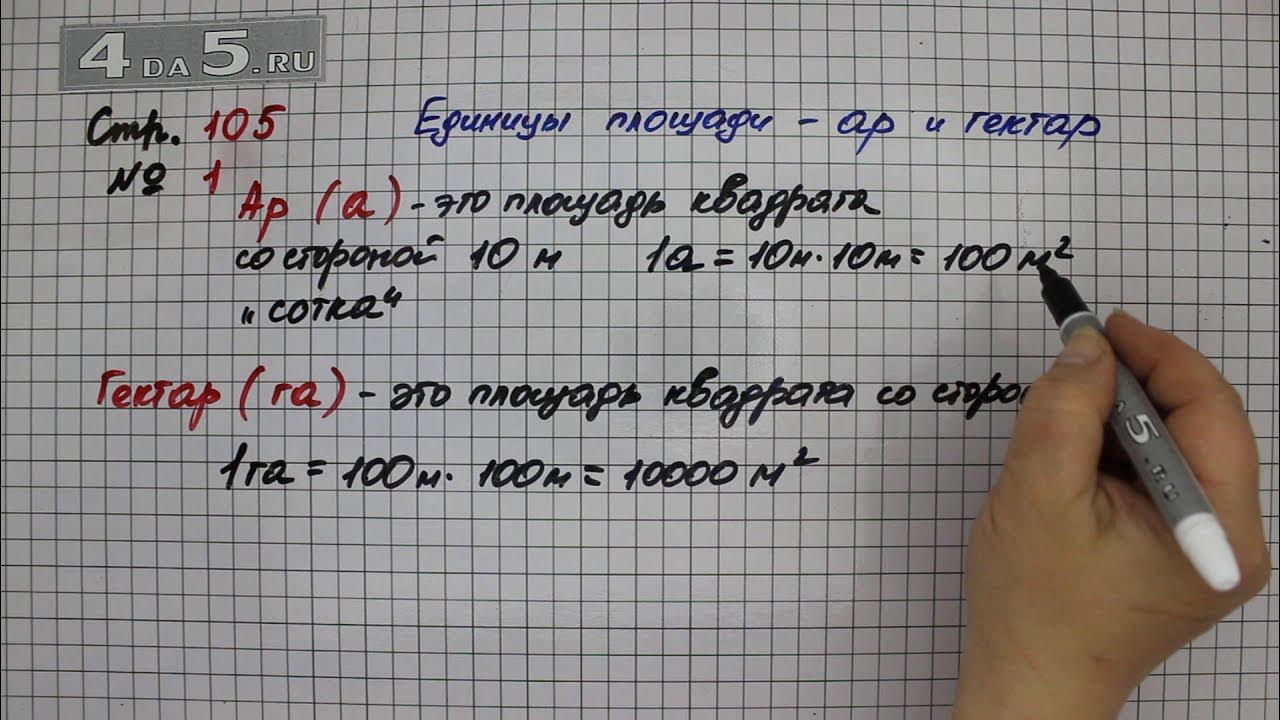 4DA5.RU
Стр. 105
Единицы площади - ар и гектар
№ 1
Ар (а) - это площадь квадрата
со стороной 10 м 1а = 10м · 10м = 100 м²
„сотка“
Гектар (га) - это площадь квадрата со
1га = 100м · 100м = 10000 м²
5.RU